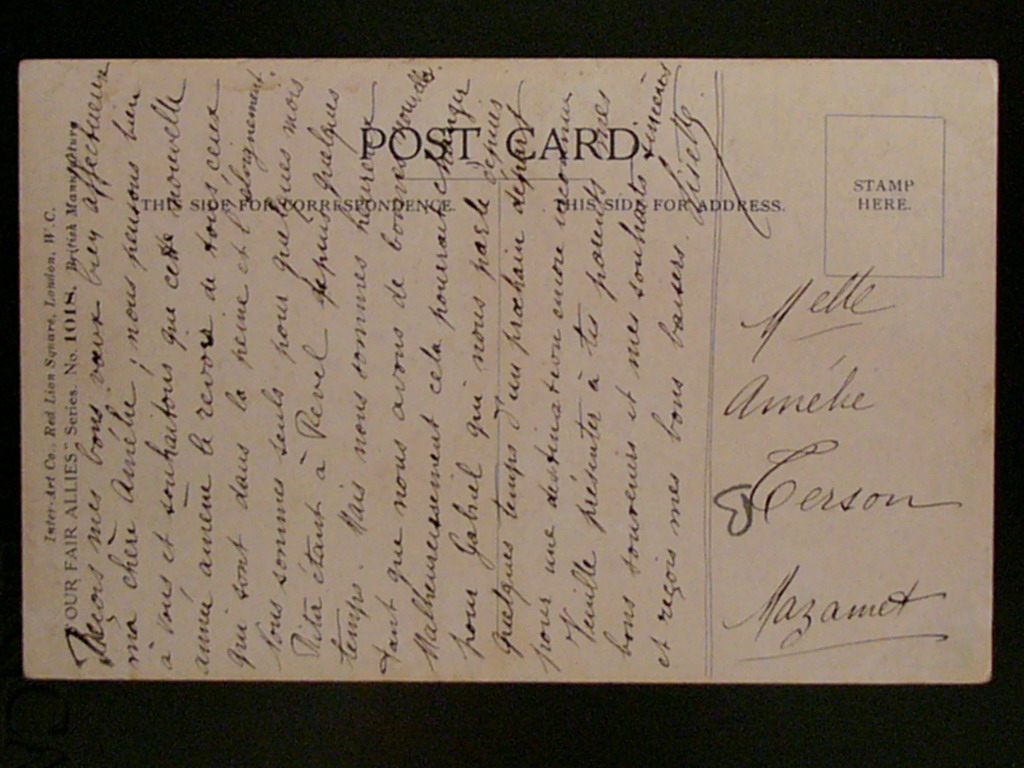 Inter-Art Co., Red Lion Square, London, W.C.
"OUR FAIR ALLIES" Series. No. 1018. British Manufacture
POST CARD.
THIS SIDE FOR CORRESPONDENCE.
THIS SIDE FOR ADDRESS.
STAMP
HERE.
Reçois mes bons vœux bien affectueux
ma chère Amélie, nous pensons bien
à vous et souhaitons que cette nouvelle
année amène le revoir de tous ceux
qui sont dans la peine et l'éloignement.
Nous sommes seuls pour quelques mois
étant à Revel depuis quelques
temps. Mais nous sommes heureux
tant que nous avons de bonnes nouvelles.
Malheureusement cela pourrait changer
pour Gabriel qui nous parle depuis
quelques temps d'un prochain départ
pour une destination encore inconnue
Veuille présenter à tes parents mes
bons souvenirs et mes souhaits sincères
et reçois mes bons baisers. Lisette
Melle
Amélie
Terson
Mazamet